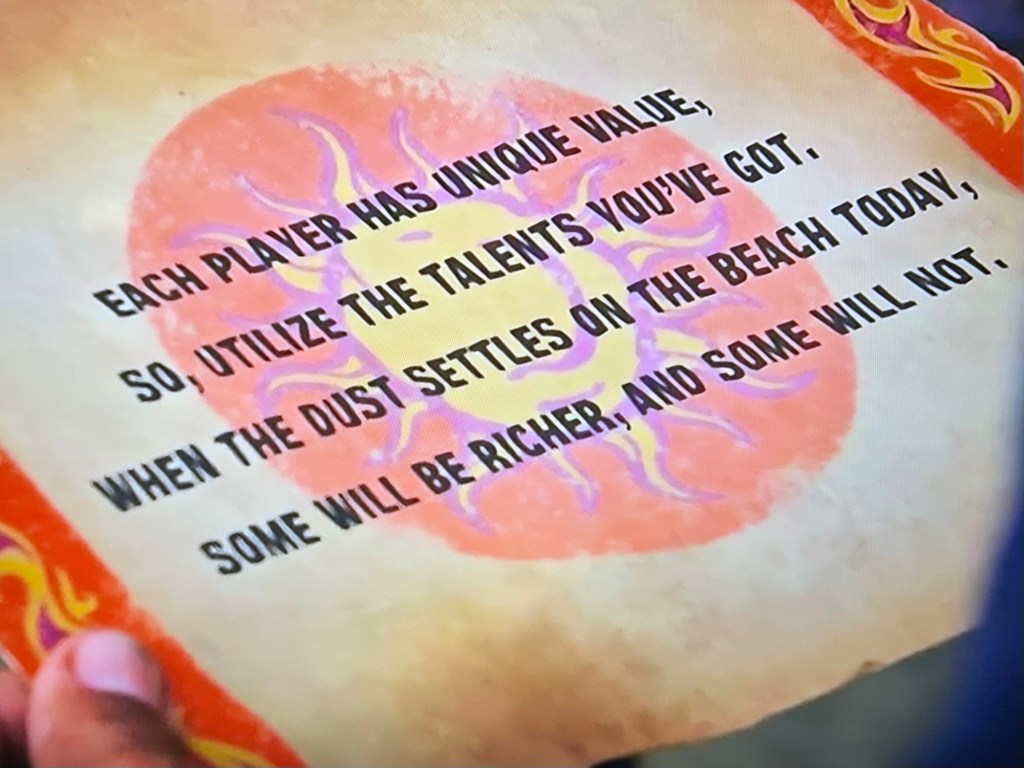 EACH PLAYER HAS UNIQUE VALUE,
SO, UTILIZE THE TALENTS YOU'VE GOT.
WHEN THE DUST SETTLES ON THE BEACH TODAY,
SOME WILL BE RICHER, AND SOME WILL NOT.